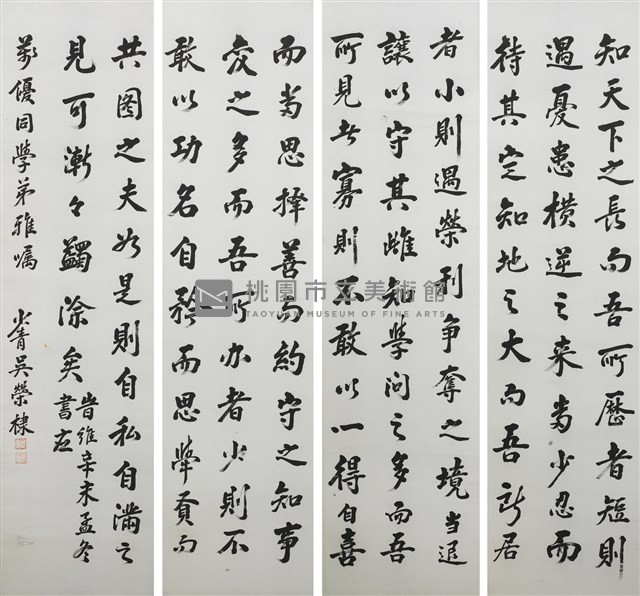 知天下之長而吾所歷者短則
遇憂患橫逆之來當少忍而
待其定知地之大而吾所居
者小則遇榮利爭奪之境當退
讓以守其雌知學問之多而吾
所見者寡則不敢以一得自喜
而當思擇善而約守之知事
變之多而吾所办者少則不
敢以功名自矜而思舉賢而
共图之夫如是則自私自滿之
見可漸々蠲除矣
旹維辛未孟冬
書应
萬優同學弟雅囑
少青吳榮棣
桃園市立美術館
TAOYUAN MUSEUM OF FINE ARTS